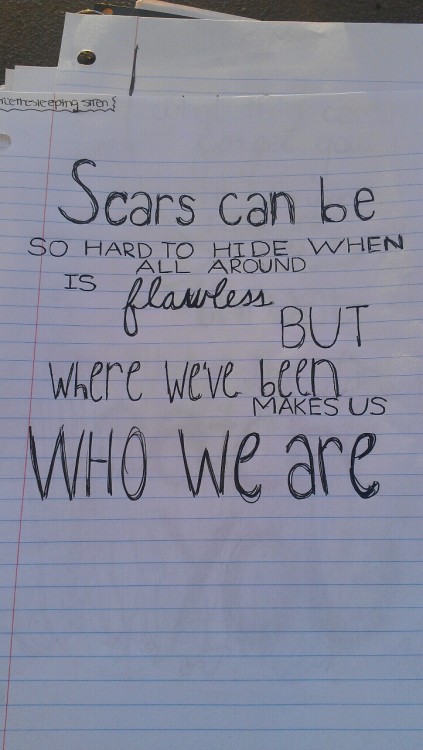 Scars can be
SO HARD TO HIDE WHEN
ALL AROUND
IS
flawless
BUT
where we've been
MAKES US
WHO We are